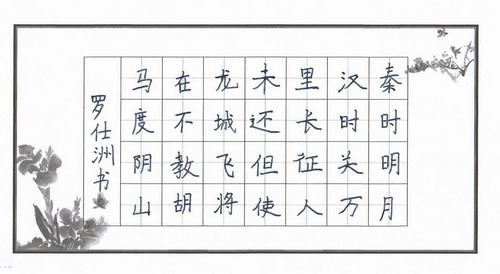 秦时明月
汉时关万
里长征人
未还但使
龙城飞将
在不教胡
马度阴山
罗仕洲书